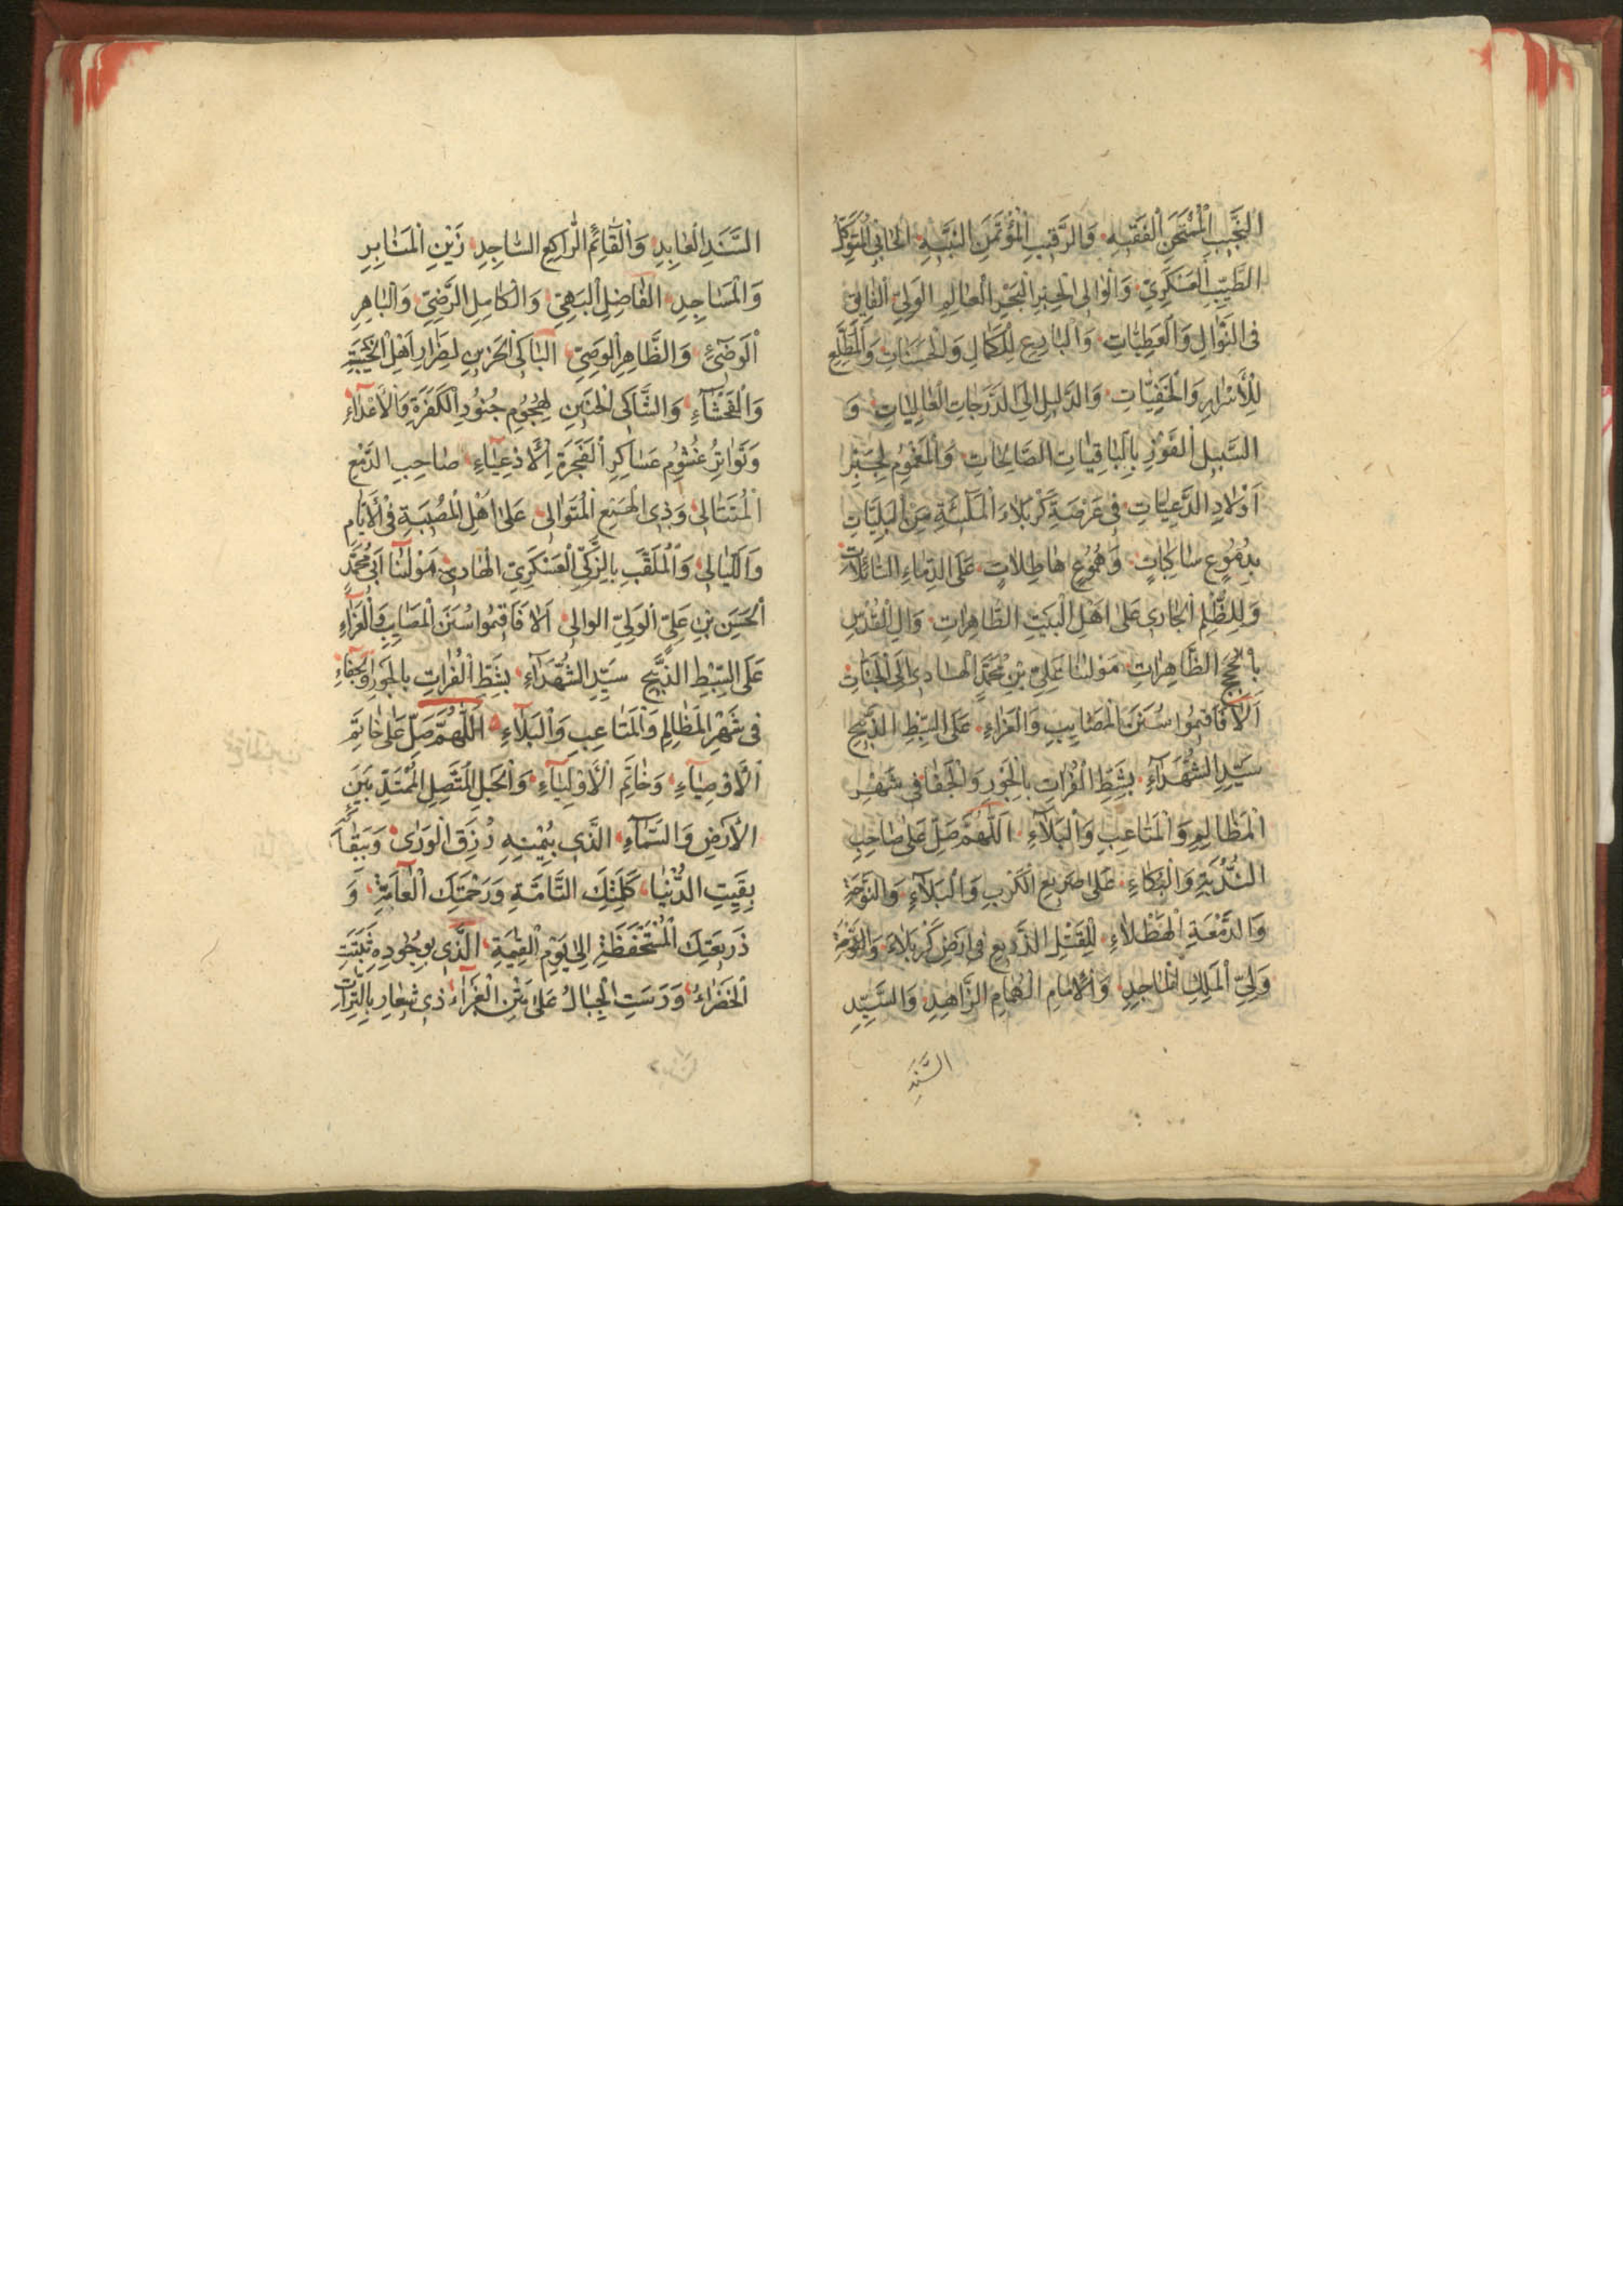 النَّجِيبِ الْمُمْتَحَنِ الْفَقِيهِ وَالرَّقِيبِ الْمُؤْتَمَنِ النَّبِيهِ الْمُتَوَكِّلِ
الطَّيِّبِ الْعَسْكَرِيِّ وَالْوَالِي الْحِبْرِ الْبَحْرِ الْعَالِمِ الْوَلِيِّ الْفَايِقِ
فِي النَّوَالِ وَالْعَطِيَّاتِ وَالْبَارِعِ لِلْكَمَالِ وَالْحَسَنَاتِ وَالْمُطَّلِعِ
لِلْأَسْرَارِ وَالْخَفِيَّاتِ وَالدَّلِيلِ إِلَى الدَّرَجَاتِ الْعَالِيَاتِ وَ
السَّبِيلِ الْفَوْزِ بِالْبَاقِيَاتِ الصَّالِحَاتِ وَالْمَغْمُومِ
أَوْلَادِ الدَّعِيَّاتِ فِي عَرْصَةِ كَرْبَلَاءَ مِنَ الْبَلِيَّاتِ
بِدُمُوعٍ سَاكِبَاتٍ وَهُمُوعٍ هَاطِلَاتٍ عَلَى الدِّمَاءِ السَّائِلَاتِ
وَلِلظُّلْمِ الْجَارِي عَلَى أَهْلِ الْبَيْتِ الطَّاهِرَاتِ وَآلِ الْقُدْسِ
بِالْحُجَجِ الظَّاهِرَاتِ مَوْلٰنَا عَلِيِّ بْنِ مُحَمَّدٍ الْهَادِي إِلَى الْجَنَّاتِ
أَلَا فَأَقِيمُوا سُنَنَ الْمَصَايِبِ وَالْعَزَاءِ عَلَى السِّبْطِ الذَّبِيحِ
سَيِّدِ الشُّهَدَآءِ بِشَطِّ الْفُرَاتِ بِالْجَوْرِ وَالْجَفَا فِي شَهْرِ
الْمَظَالِمِ وَالْمَتَاعِبِ وَالْبَلَآءِ اَللّٰهُمَّ صَلِّ عَلَى صَاحِبِ
النُّدْبَةِ وَالْبُكَاءِ عَلَى صَرِيعِ الْكَرْبِ وَالْبَلَآءِ وَالنَّوْحَةِ
وَالدَّمْعَةِ الْهَطْلَاءِ لِلْقَتْلِ الذَّرِيعِ فِي أَرْضِ كَرْبَلَاءَ
وَلِيِّ الْمَلِكِ الْمَاجِدِ وَالْإِمَامِ الْهُمَامِ الزَّاهِدِ وَالسَّيِّدِ
السَّنَدِ
السَّنَدِ الْعَابِدِ وَالْقَآئِمِ الرَّاكِعِ السَّاجِدِ زَيْنِ الْمَنَابِرِ
وَالْمَسَاجِدِ الْفَاضِلِ الْبَهِيِّ وَالْكَامِلِ الرَّضِيِّ وَالْبَاهِرِ
الْوَضِيءِ وَالظَّاهِرِ الْوَصِيِّ الْبَاكِي الْحَزِينِ لِضِرَارِ أَهْلِ
وَالْفَحْشَآءِ وَالشَّاكِي الْحَنِينِ لِهُجُومِ جُنُودِ الْكَفَرَةِ وَالْأَعْدَآءِ
وَتَوَاتُرِ غُشُومِ عَسَاكِرِ الْفَجَرَةِ الْأَدْعِيَآءِ صَاحِبِ الدَّمْعِ
الْمُتَتَالِي وَذِي الْهَمْعِ الْمُتَوَالِي عَلَى أَهْلِ الْمُصِيبَةِ فِي الْأَيَّامِ
وَاللَّيَالِي وَالْمُلَقَّبِ بِالزَّكِيِّ الْعَسْكَرِيِّ الْهَادِي مَوْلٰنَا أَبِي مُحَمَّدٍ
الْحَسَنِ بْنِ عَلِيٍّ الْوَلِيِّ الْوَالِي أَلَا فَأَقِيمُوا سُنَنَ الْمَصَايِبِ وَالْعَزَآءِ
عَلَى السِّبْطِ الذَّبِيحِ سَيِّدِ الشُّهَدَآءِ بِشَطِّ الْفُرَاتِ بِالْجَوْرِ وَالْجَفَآءِ
فِي شَهْرِ الْمَظَالِمِ وَالْمَتَاعِبِ وَالْبَلَآءِ اَللّٰهُمَّ صَلِّ عَلَى خَاتَمِ
الْأَوْصِيَآءِ وَخَاتَمِ الْأَوْلِيَآءِ وَالْحَبْلِ الْمُتَّصِلِ الْمُمْتَدِّ بَيْنَ
الْأَرْضِ وَالسَّمَآءِ الَّذِي بِيُمْنِهِ رُزِقَ الْوَرٰى وَبِبَقَآئِهِ
بَقِيَتِ الدُّنْيَا كَلِمَتِكَ التَّامَّةِ وَرَحْمَتِكَ الْعَآمَّةِ وَ
ذَرِيعَتِكَ الْمُسْتَحْفَظَةِ إِلَى يَوْمِ الْقِيٰمَةِ الَّذِي بِوُجُودِهِ ثَبَتَتِ
الْخَضْرَاءُ وَرَسَتِ الْجِبَالُ عَلَى مَتْنِ الْغَبْرَآءِ ذِي شِعَارِ